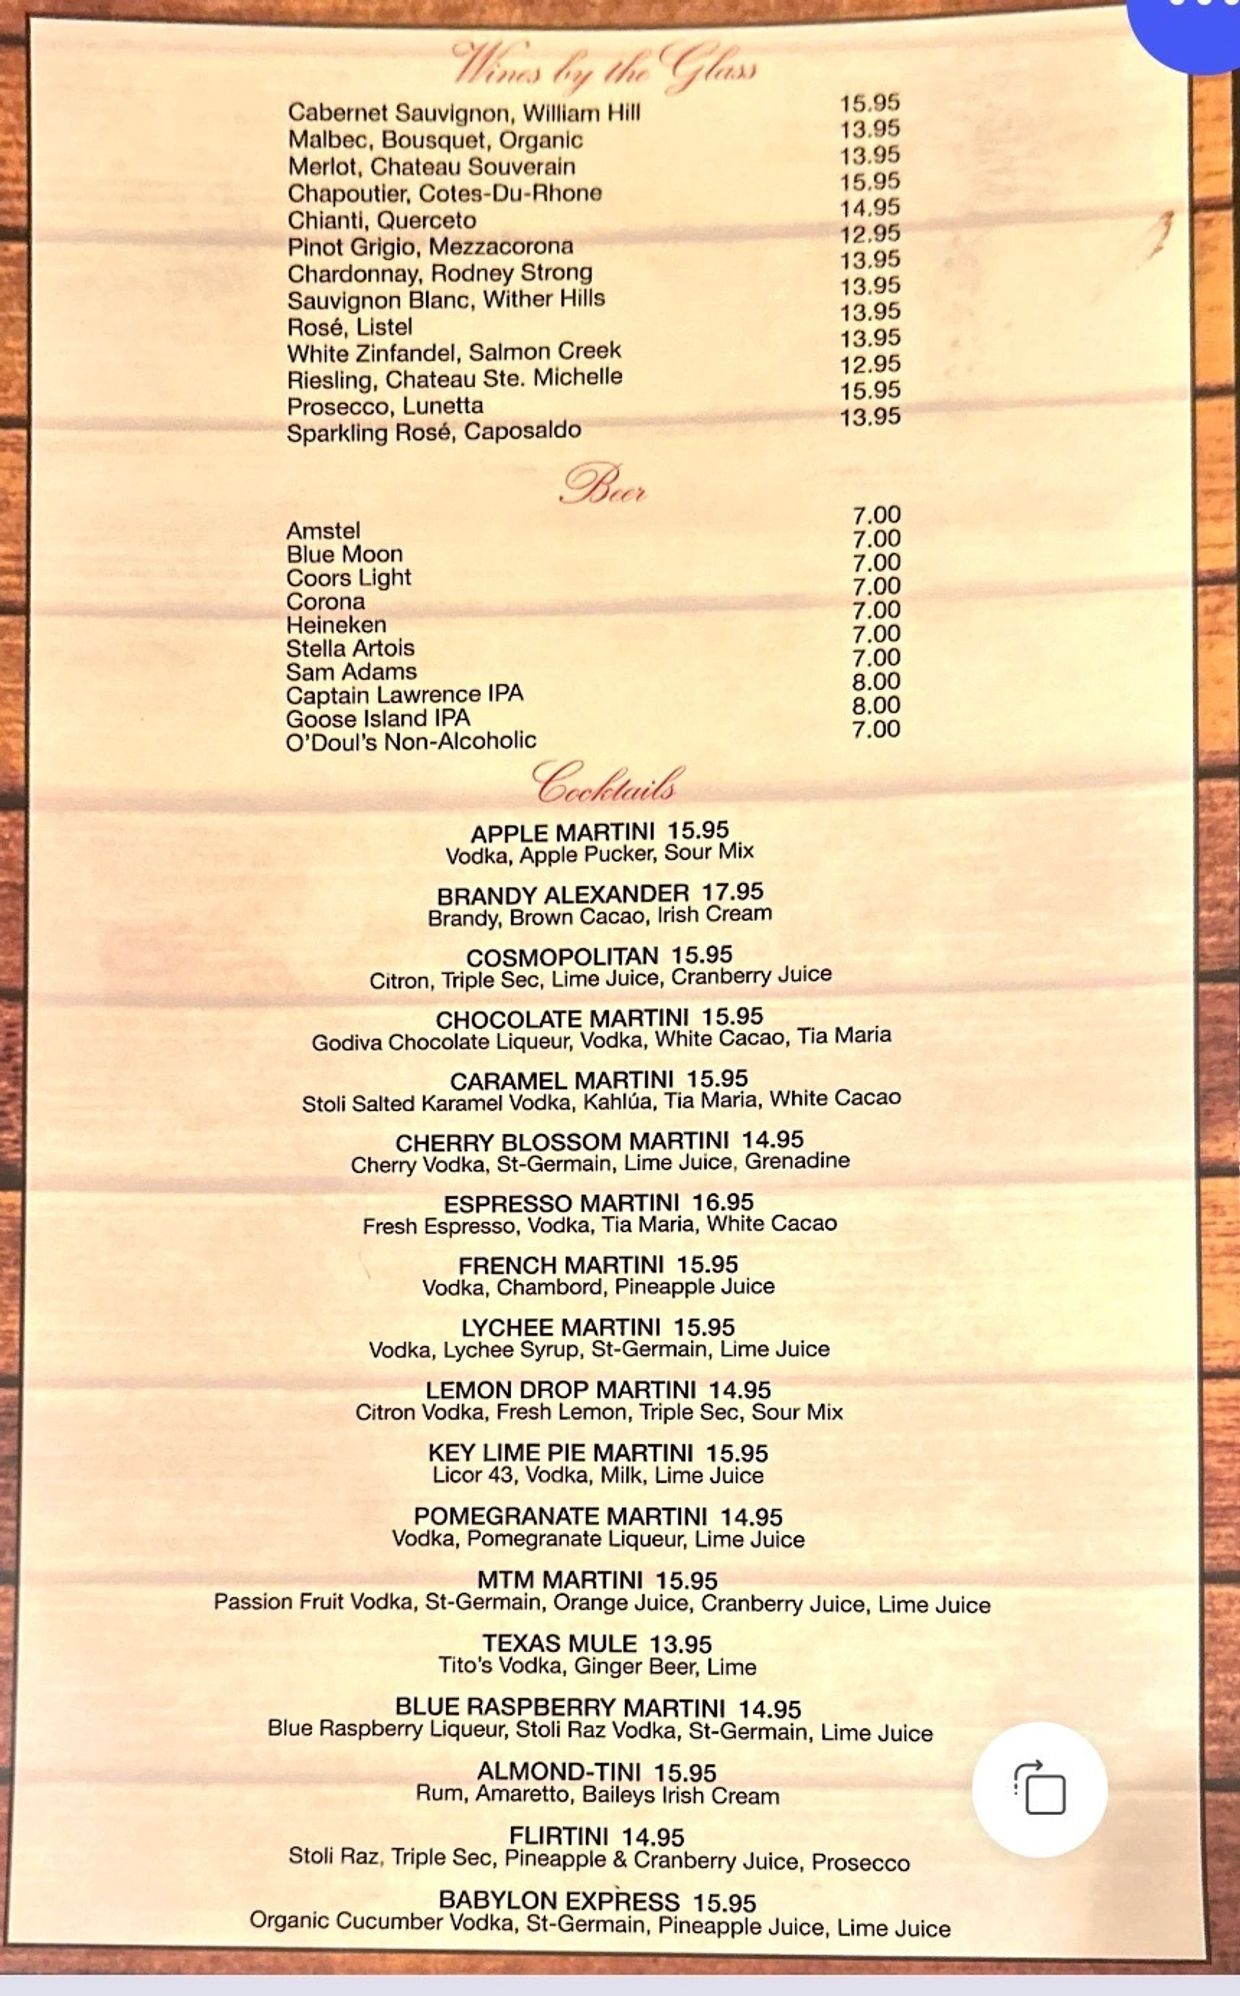 Wines by the Glass
Cabernet Sauvignon, William Hill 15.95
Malbec, Bousquet, Organic 13.95
Merlot, Chateau Souverain 13.95
Chapoutier, Cotes-Du-Rhone 15.95
Chianti, Querceto 14.95
Pinot Grigio, Mezzacorona 12.95
Chardonnay, Rodney Strong 13.95
Sauvignon Blanc, Wither Hills 13.95
Rosé, Listel 13.95
White Zinfandel, Salmon Creek 13.95
Riesling, Chateau Ste. Michelle 12.95
Prosecco, Lunetta 15.95
Sparkling Rosé, Caposaldo 13.95
Beer
Amstel 7.00
Blue Moon 7.00
Coors Light 7.00
Corona 7.00
Heineken 7.00
Stella Artois 7.00
Sam Adams 7.00
Captain Lawrence IPA 8.00
Goose Island IPA 8.00
O'Doul's Non-Alcoholic 7.00
Cocktails
APPLE MARTINI 15.95
Vodka, Apple Pucker, Sour Mix
BRANDY ALEXANDER 17.95
Brandy, Brown Cacao, Irish Cream
COSMOPOLITAN 15.95
Citron, Triple Sec, Lime Juice, Cranberry Juice
CHOCOLATE MARTINI 15.95
Godiva Chocolate Liqueur, Vodka, White Cacao, Tia Maria
CARAMEL MARTINI 15.95
Stoli Salted Karamel Vodka, Kahlúa, Tia Maria, White Cacao
CHERRY BLOSSOM MARTINI 14.95
Cherry Vodka, St-Germain, Lime Juice, Grenadine
ESPRESSO MARTINI 16.95
Fresh Espresso, Vodka, Tia Maria, White Cacao
FRENCH MARTINI 15.95
Vodka, Chambord, Pineapple Juice
LYCHEE MARTINI 15.95
Vodka, Lychee Syrup, St-Germain, Lime Juice
LEMON DROP MARTINI 14.95
Citron Vodka, Fresh Lemon, Triple Sec, Sour Mix
KEY LIME PIE MARTINI 15.95
Licor 43, Vodka, Milk, Lime Juice
POMEGRANATE MARTINI 14.95
Vodka, Pomegranate Liqueur, Lime Juice
MTM MARTINI 15.95
Passion Fruit Vodka, St-Germain, Orange Juice, Cranberry Juice, Lime Juice
TEXAS MULE 13.95
Tito's Vodka, Ginger Beer, Lime
BLUE RASPBERRY MARTINI 14.95
Blue Raspberry Liqueur, Stoli Raz Vodka, St-Germain, Lime Juice
ALMOND-TINI 15.95
Rum, Amaretto, Baileys Irish Cream
FLIRTINI 14.95
Stoli Raz, Triple Sec, Pineapple & Cranberry Juice, Prosecco
BABYLON EXPRESS 15.95
Organic Cucumber Vodka, St-Germain, Pineapple Juice, Lime Juice